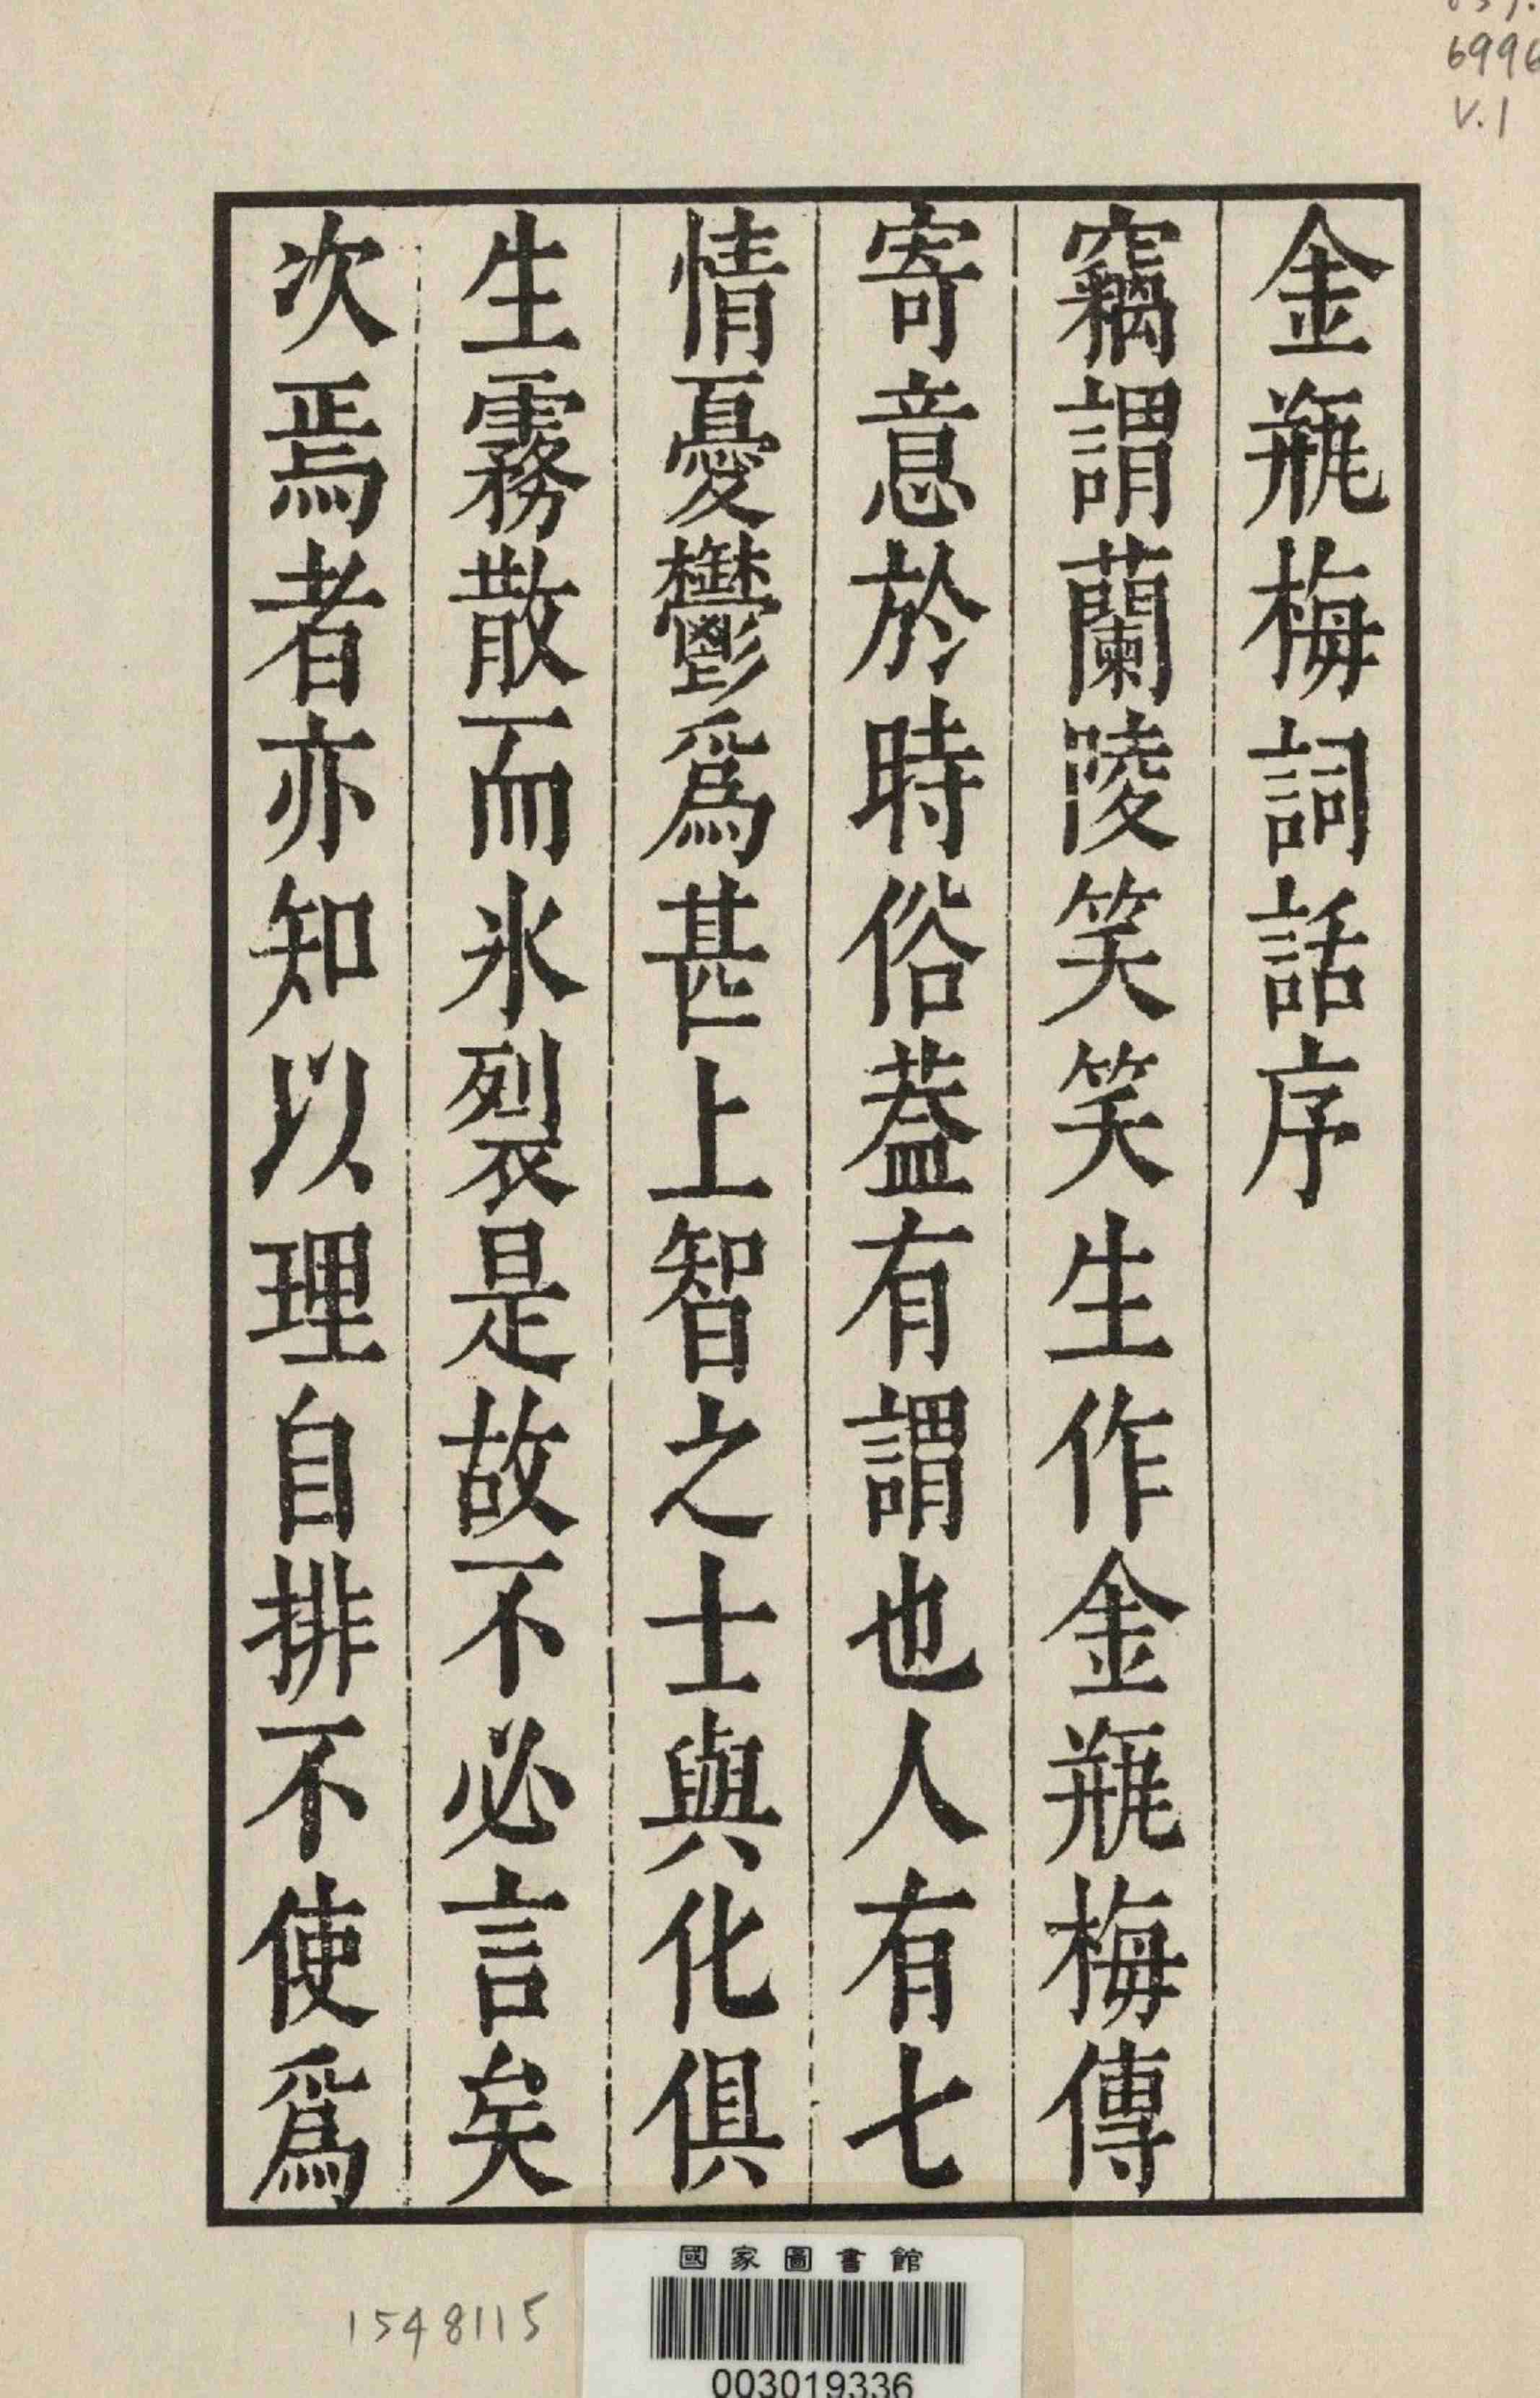 金瓶梅詞話序
竊謂蘭陵笑笑生作金瓶梅傳
寄意於時俗蓋有謂也人有七
情憂鬱爲甚上智之士與化俱
生霧散而氷裂是故不必言矣
次焉者亦知以理自排不使爲
6996
V.1
國家圖書館
003019336
1548115